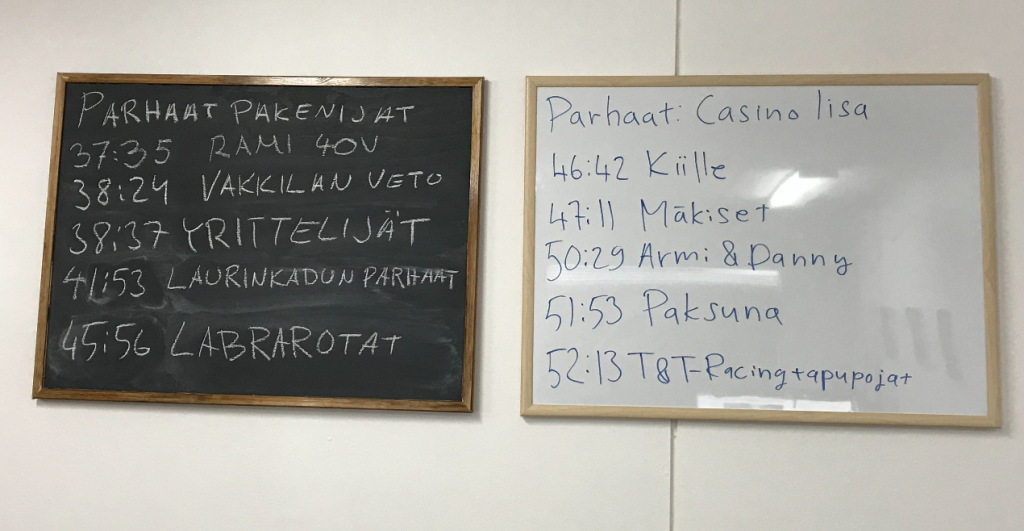 PARHAAT PAKENIJAT
37:35 RAMI 40V
38:24 VAKKILAN VETO
38:37 YRITTELIJÄT
41:53 LAURINKADUN PARHAAT
45:56 LABRAROTAT
Parhaat: Casino lisa
46:42 Kiille
47:11 Mäkiset
50:29 Armi & Danny
51:53 Paksuna
52:13 T&T-Racing+apupojat